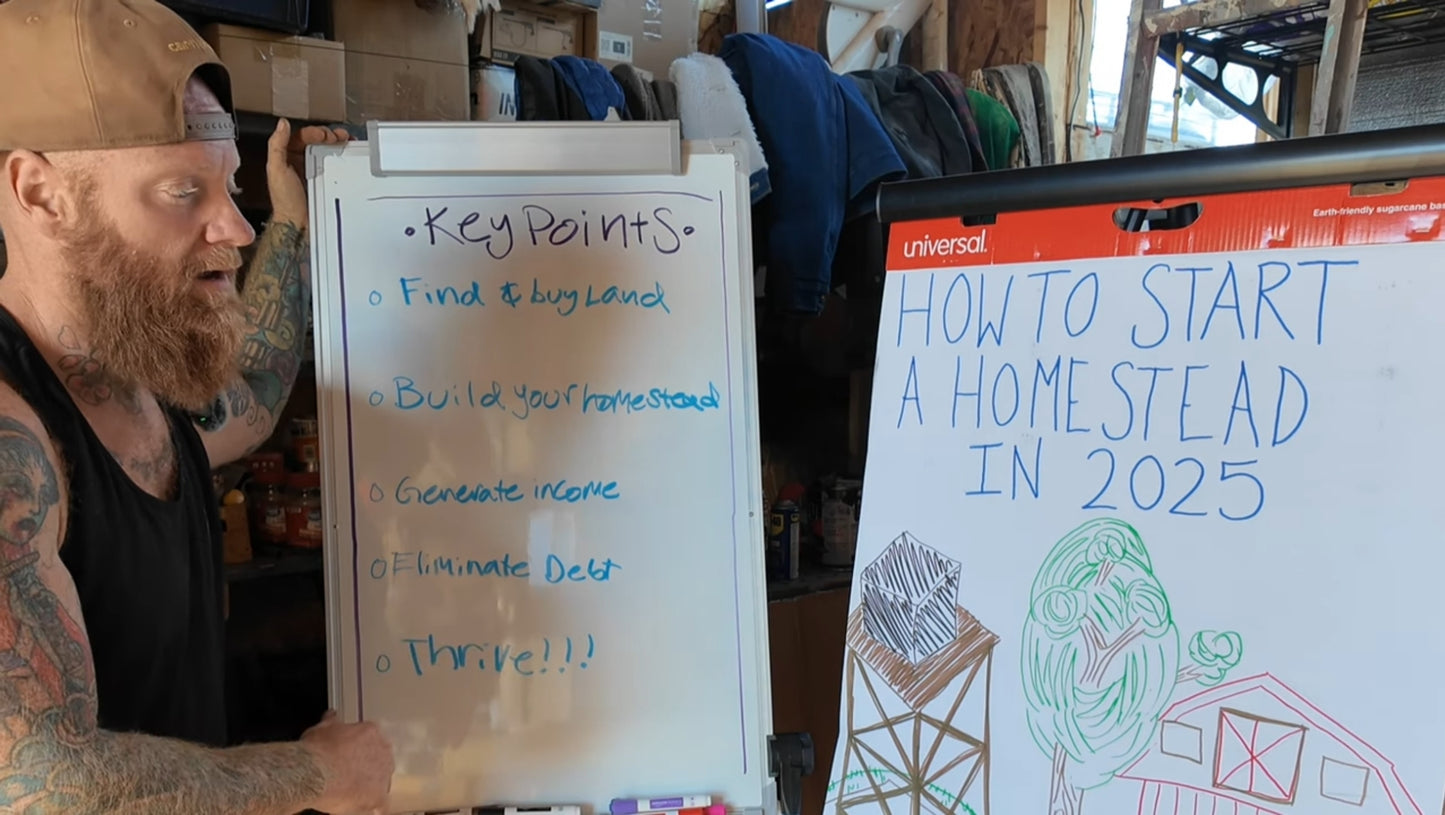 • Key Points •
○ Find & buy Land
○ Build your homestead
○ Generate income
○ Eliminate Debt
○ Thrive!!!
universal.
Earth-friendly sugarcane bas
HOW TO START
A HOMESTEAD
IN 2025